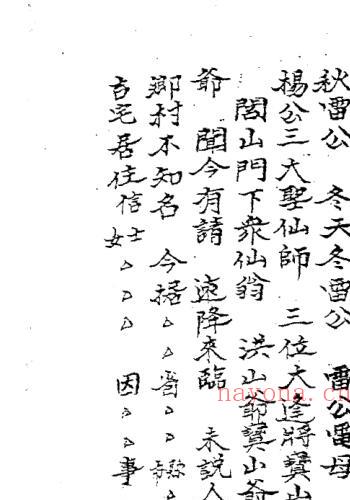 秋雷公　冬天冬雷公　雷公雷母
楊公三大聖仙師　三位大逢將龔山
閭山門下衆仙翁　洪山爺龔山爺
爺　聞今有請　速降來臨　未說人
鄉村本知名　今据△△省△△縣
古宅居住信士女△△△△　因△△事
nayona.cn